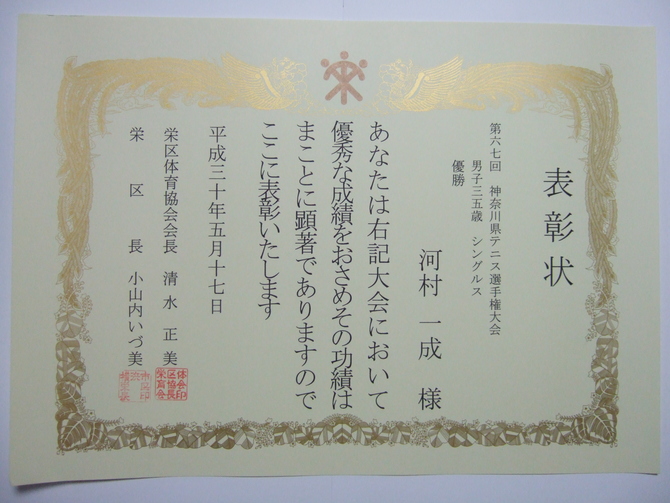 表彰状
第六七回 神奈川県テニス選手権大会
男子三五歳 シングルス
優勝
河村 一成 様
あなたは右記大会において
優秀な成績をおさめその功績は
まことに顕著でありますので
ここに表彰いたします
平成三十年五月十七日
栄区体育協会会長 清水 正美
栄区長 小山内いづ美